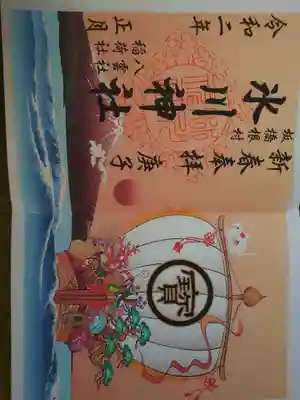 寶
新春奉拝 庚子
板橋根村
氷川神社
八雲社
稲荷社
令和二年 正月